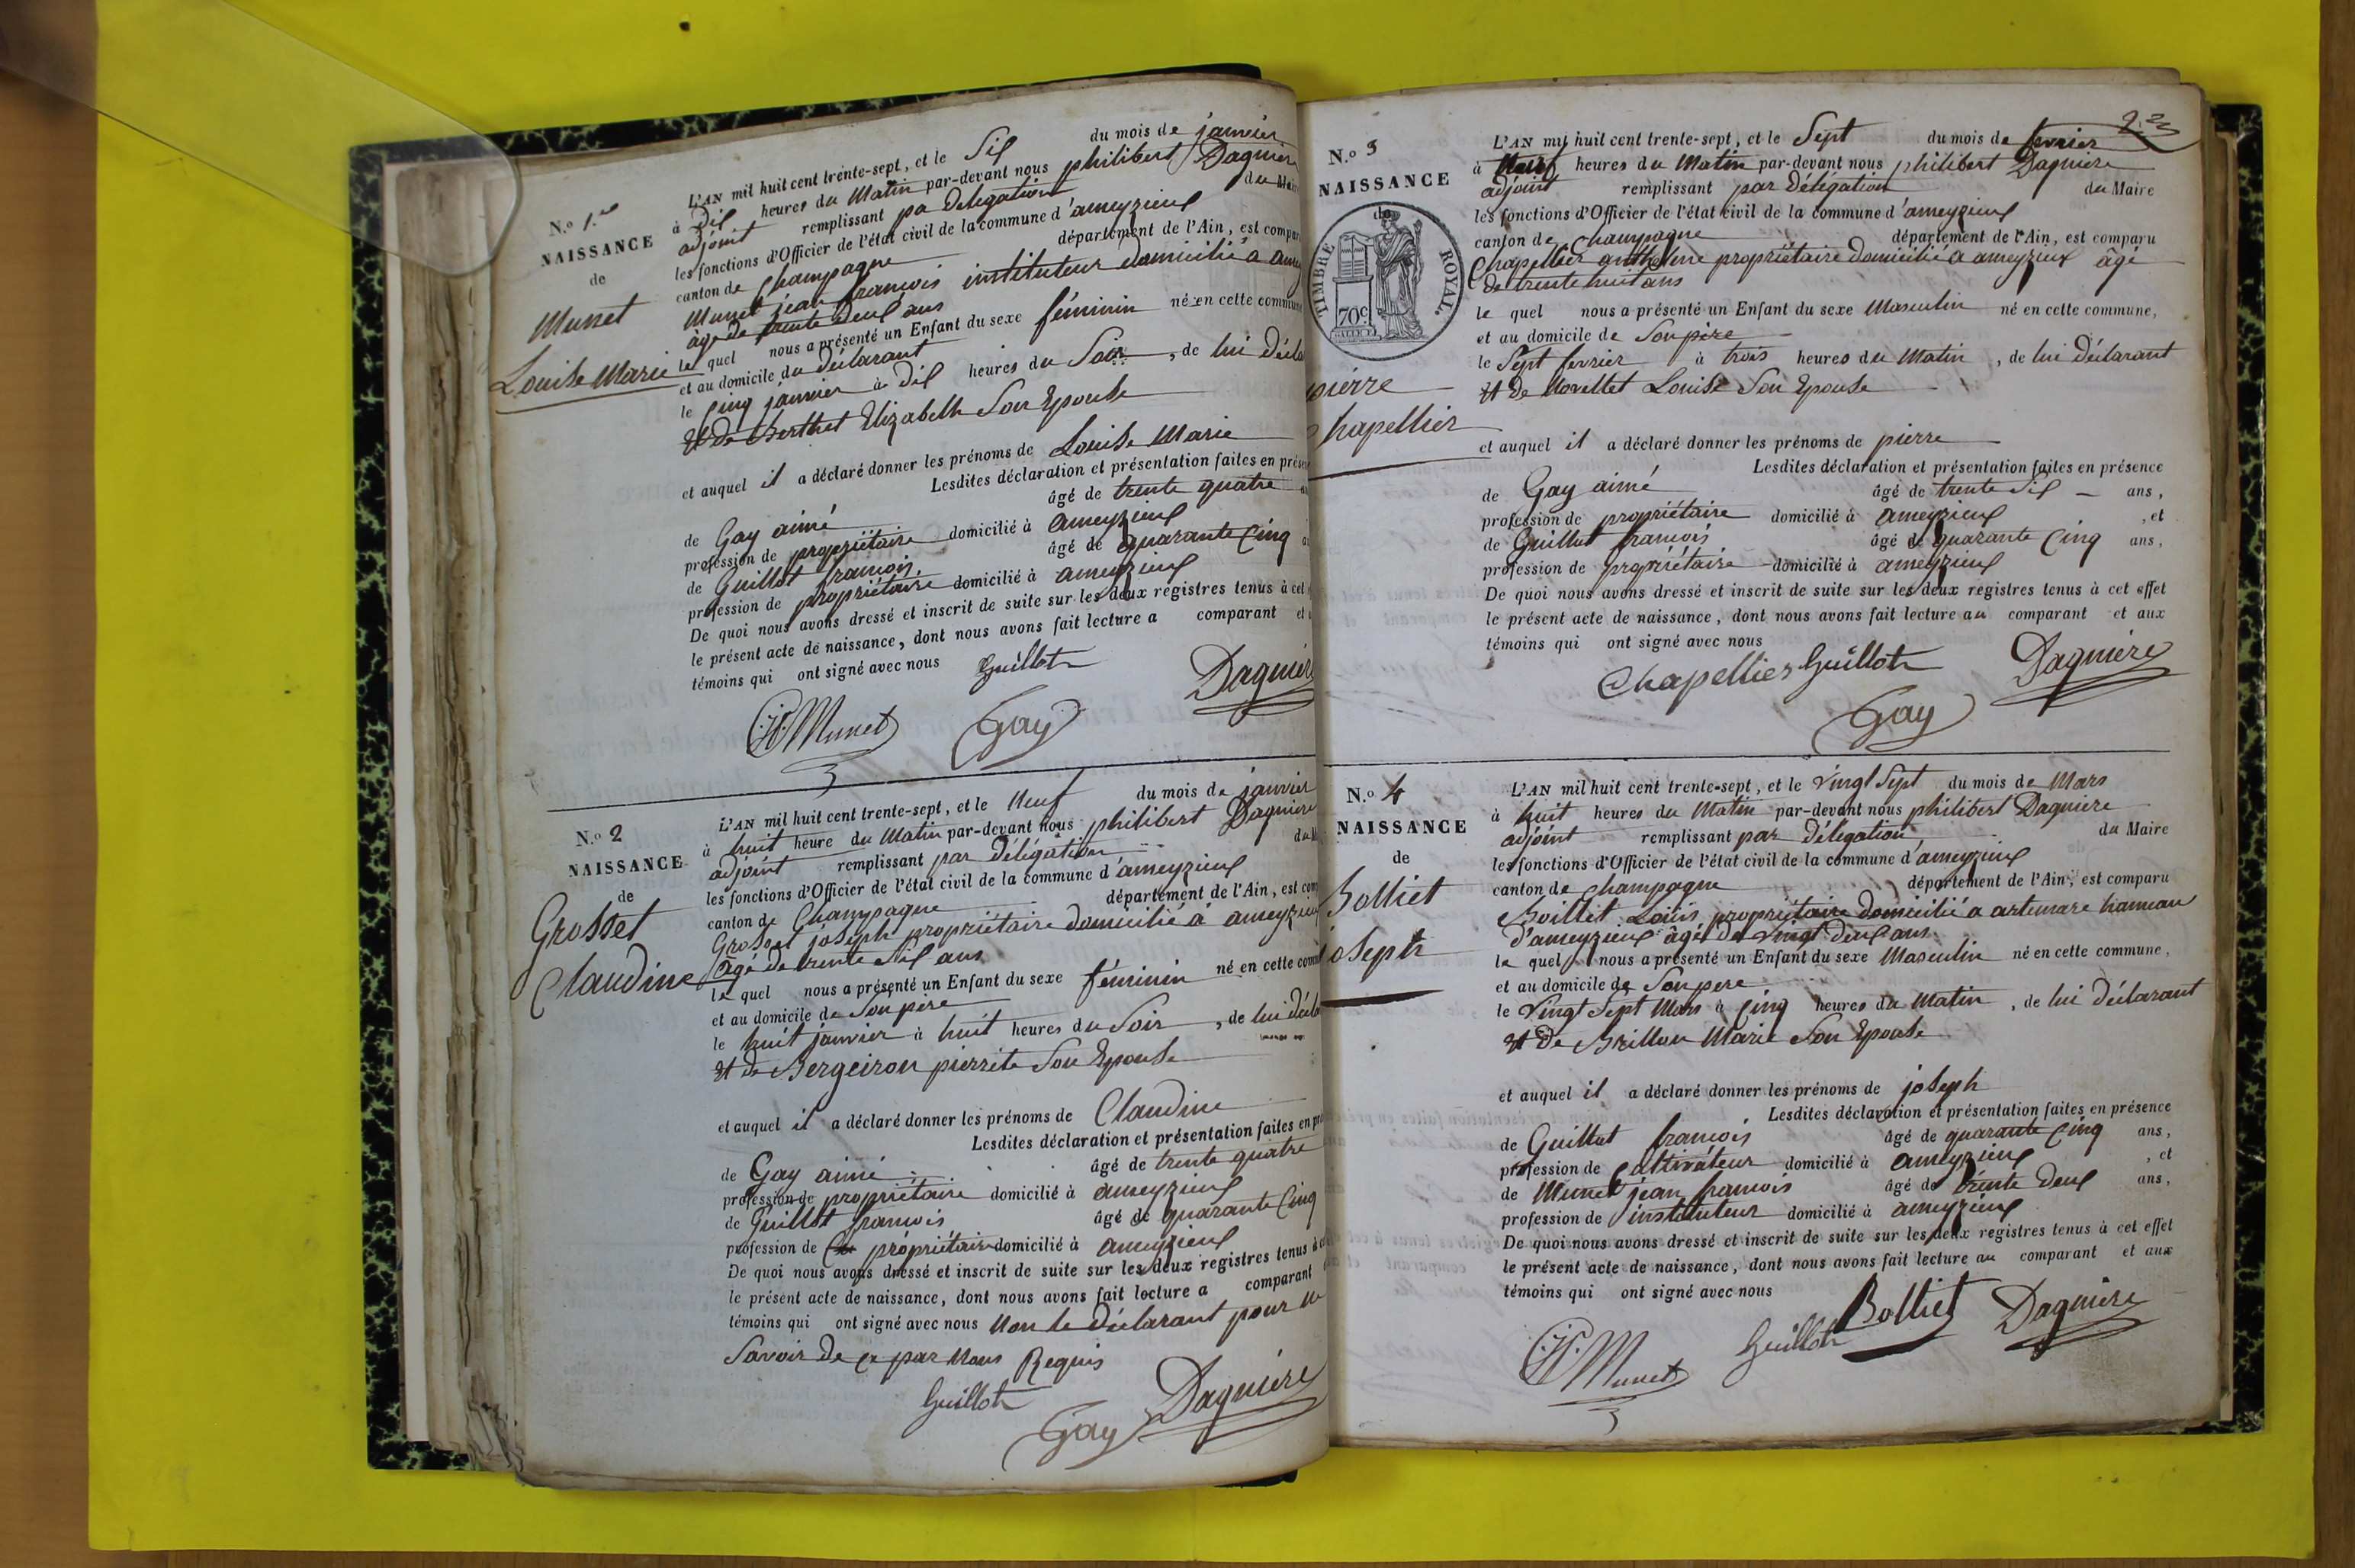 N.o 1.er
NAISSANCE
de
Munet
Louise Marie
L'AN mil huit cent trente-sept, et le Six du mois de janvier
à Dix heures du Matin par-devant nous philibert Dagnier
adjoint remplissant pa Délégation du Maire
les fonctions d'Officier de l'état civil de la commune d'ameyzieux
canton de Champagne département de l'Ain, est compar
Munet jean francois instituteur domicilié à amey
âgé de trente Deux ans
le quel nous a présenté un Enfant du sexe féminin né en cette commune
et au domicile du déclarant
le Cinq janvier à dix heures du Soir, de lui décla
Et de Berthet Elizabeth Son Epouse
et auquel il a déclaré donner les prénoms de Louise Marie
Lesdites déclaration et présentation faites en prése
de Gay aimé âgé de trente quatre
profession de propriétaire domicilié à ameyzieux
de Guillot francois âgé de quarante Cinq
profession de propriétaire domicilié à ameyzieux
De quoi nous avons dressé et inscrit de suite sur les deux registres tenus à cet
le présent acte de naissance, dont nous avons fait lecture a comparant et
témoins qui ont signé avec nous Guillot
Dagnièr
Munet Gay
N.o 2
NAISSANCE
de
Grosset
Claudine
L'AN mil huit cent trente-sept, et le Neuf du mois de janvier
à huit heure du Matin par-devant nous philibert Dagniere
adjoint remplissant par Délégation du M
les fonctions d'Officier de l'état civil de la commune d'ameyzieux
canton de Champagne département de l'Ain, est com
Grosset joseph propriétaire domicilié à ameyzieu
âgé de trente Six ans
le quel nous a présenté un Enfant du sexe féminin né en cette com
et au domicile de Son père
le huit janvier à huit heures du Soir, de lui décla
Et de Bergeiron pierrite Son Epouse
et auquel il a déclaré donner les prénoms de Claudine
Lesdites déclaration et présentation faites en pr
de Gay aimé âgé de trente quatre
profession de propriétaire domicilié à ameyzieux
de Guillot francois âgé de quarante Cinq
profession de propriétaire domicilié à ameyzieux
De quoi nous avons dressé et inscrit de suite sur les deux registres tenus à c
le présent acte de naissance, dont nous avons fait lecture a comparant
témoins qui ont signé avec nous Non le déclarant pour n
Savoir de ce par Nous Requis
Guillot
Gay Dagnière
2.
N.o 3
NAISSANCE
de
TIMBRE ROYAL.
70c
pierre
Chapellier
L'AN mil huit cent trente-sept, et le Sept du mois de fevrier
à Neuf heures du Matin par-devant nous philibert Dagniere
adjoint remplissant par Délégation du Maire
les fonctions d'Officier de l'état civil de la commune d'ameyzieux
canton de Champagne département de l'Ain, est comparu
Chapellier anthelme propriétaire domicilié à ameyzieux âgé
de trente huit ans
le quel nous a présenté un Enfant du sexe Masculin né en cette commune,
et au domicile de Son père
le Sept fevrier à trois heures du Matin, de lui Déclarant
Et de Novellet Louise Son Epouse
et auquel il a déclaré donner les prénoms de pierre
Lesdites déclaration et présentation faites en présence
de Gay aimé âgé de trente Six ans,
profession de propriétaire domicilié à ameyzieux, et
de Guillot francois âgé de quarante Cinq ans,
profession de propriétaire domicilié à ameyzieux
De quoi nous avons dressé et inscrit de suite sur les deux registres tenus à cet effet
le présent acte de naissance, dont nous avons fait lecture au comparant et aux
témoins qui ont signé avec nous
Chapellier Guillot Dagnière
Gay
N.o 4
NAISSANCE
de
Bolliet
joseph
L'AN mil huit cent trente-sept, et le Vingt Sept du mois de Mars
à huit heures du Matin par-devant nous philibert Dagniere
adjoint remplissant par Délégation du Maire
les fonctions d'Officier de l'état civil de la commune d'ameyzieux
canton de Champagne département de l'Ain, est comparu
Boillet Louis propriétaire domicilié a artemare hameau
d'ameyzieux âgé de Vingt Deux ans
le quel nous a présenté un Enfant du sexe Masculin né en cette commune,
et au domicile de Son pere
le Vingt Sept Mars à Cinq heures du Matin, de lui Déclarant
Et De Brillon Marie Son Epouse
et auquel il a déclaré donner les prénoms de joseph
Lesdites déclaration et présentation faites en présence
de Guillot francois âgé de quarante Cinq ans,
profession de Cultivateur domicilié à ameyzieux, et
de Munet jean francois âgé de trente Deux ans,
profession de instituteur domicilié à ameyzieux
De quoi nous avons dressé et inscrit de suite sur les deux registres tenus à cet effet
le présent acte de naissance, dont nous avons fait lecture au comparant et aux
témoins qui ont signé avec nous
Munet Guillot Bolliet Dagnière